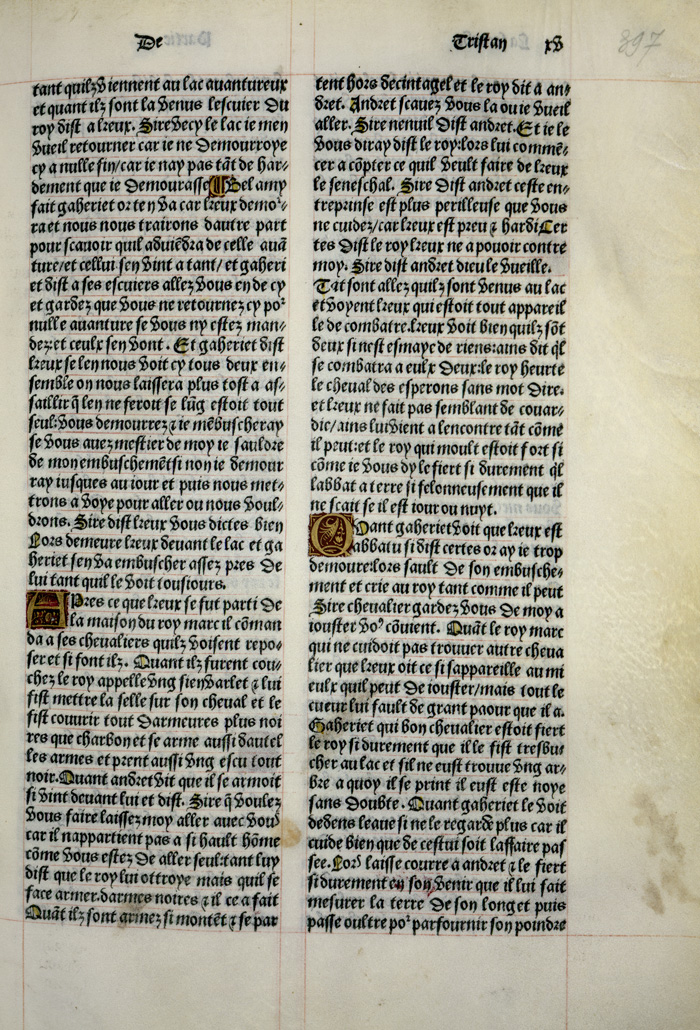 De
Tristan xv
397
tant quilz viennent au lac auantureux
et quant ilz sont la venus lescuier du
roy dist a lreux. Sire vecy le lac ie men
vueil retourner car ie ne demourroye
cy a nulle fin/car ie nay pas tãt de har-
dement que ie demourasse Bel amy
fait gaheriet or ten va car lreux demo²-
ra et nous nous trairons dautre part
pour scauoir quil aduiẽdra de celle auã
ture/et cellui sen vint a tant/et gaheri
et dist a ses escuiers allez vous en de cy
et gardez que vous ne retournez cy po²
nulle auanture se vous ny estez man-
dez:et ceulx sen vont. Et gaheriet dist
lreux se len nous voit cy tous deux en-
semble on nous laissera plus tost a as-
saillir q̃ len ne feroit se lũg estoit tout
seul:vous demourrez ⁊ ie mẽbuscheray
se vous auez mestier de moy ie sauldre
de mon embuschemẽt si non ie demour
ray iusques au iour et puis nous met-
trons a voye pour aller ou nous voul-
drons. Sire dist lreux vous dictes bien
Lors demeure lreux deuant le lac et ga
heriet sen va embuscher assez pres de
lui tant quil le voit tousiours.
APres ce que lreux se fut parti de
la maison du roy marc il cõman
da a ses cheualiers quilz voisent repo-
ser et si font ilz. Quant ilz furent cou-
chez le roy appelle vng sien varlet ⁊ lui
fist mettre la selle sur son cheual et le
fist couurir tout darmeures plus noi
res que charbon et se arme aussi dautel
les armes et prent aussi vng escu tout
noir.Quant andret vit que il se armoit
si vint deuant lui et dist. Sire q̃ voulez
vous faire laissez moy aller auec vou⁹
car il nappartient pas a si hault hõme
cõme vous estez de aller seul:tant luy
dist que le roy lui ottroye mais quil se
face armer.darmes noires ⁊ il ce a fait
Quãt ilz sont armez si montẽt ⁊ se par
tent hors de cintagel et le roy dit a an-
dret. Andret scauez vous la ou ie vueil
aller. Sire nennil dist andret. Et ie le
vous diray dist le roy:lors lui commẽ-
cer a cõpter ce quil veult faire de lreux
le seneschal. Sire dist andret ceste en-
treprinse est plus perilleuse que vous
ne cuidez/car lreux est preu ⁊ hardi Cer
tes dist le roy lreux ne a pouoir contre
moy. Sire dist andret dieu le vueille.
Tãt sont allez quilz sont venus au lac
et voyent lreux qui estoit tout appareil
le de combatre.lreux voit bien quilz sõt
deux si nest esmaye de riens:ains dit ql̃
se combatra a eulx deux:le roy heurte
le cheual des esperons sans mot dire.
et lreux ne fait pas semblant de couar-
die/ains lui vient a lencontre tãt cõme
il peut:et le roy qui moult estoit fort si
cõme ie vous dy le fiert si durement ql̃
labbat a terre si felonneusement que il
ne scait se il est iour ou nuyt.
QVant gaheriet voit que lreux est
abbatu si dist certes or ay ie trop
demoure:lors sault de son embusche-
ment et crie au roy tant comme il peut
Sire cheualier gardez vous de moy a
iouster vo⁹ cõuient. Quãt le roy marc
qui ne cuidoit pas trouuer autre cheua
lier que lreux oit ce si sappareille au mi
eulx quil peut de iouster/mais tout le
cueur lui fault de grant paour que il a.
Gaheriet qui bon cheualier estoit fiert
le roy si durement que il le fist tresbu-
cher au lac et sil ne eust trouue vng ar-
bre a quoy il se print il eust este noye
sans doubte. Quant gaheriet le voit
dedens leaue si ne le regarde plus car il
cuide bien que de cestui soit laffaire pas
see.Lors laisse courre a andret ⁊ le fiert
si durement en son venir que il lui fait
mesurer la terre de son long et puis
passe oultre po² parfournir son poindre